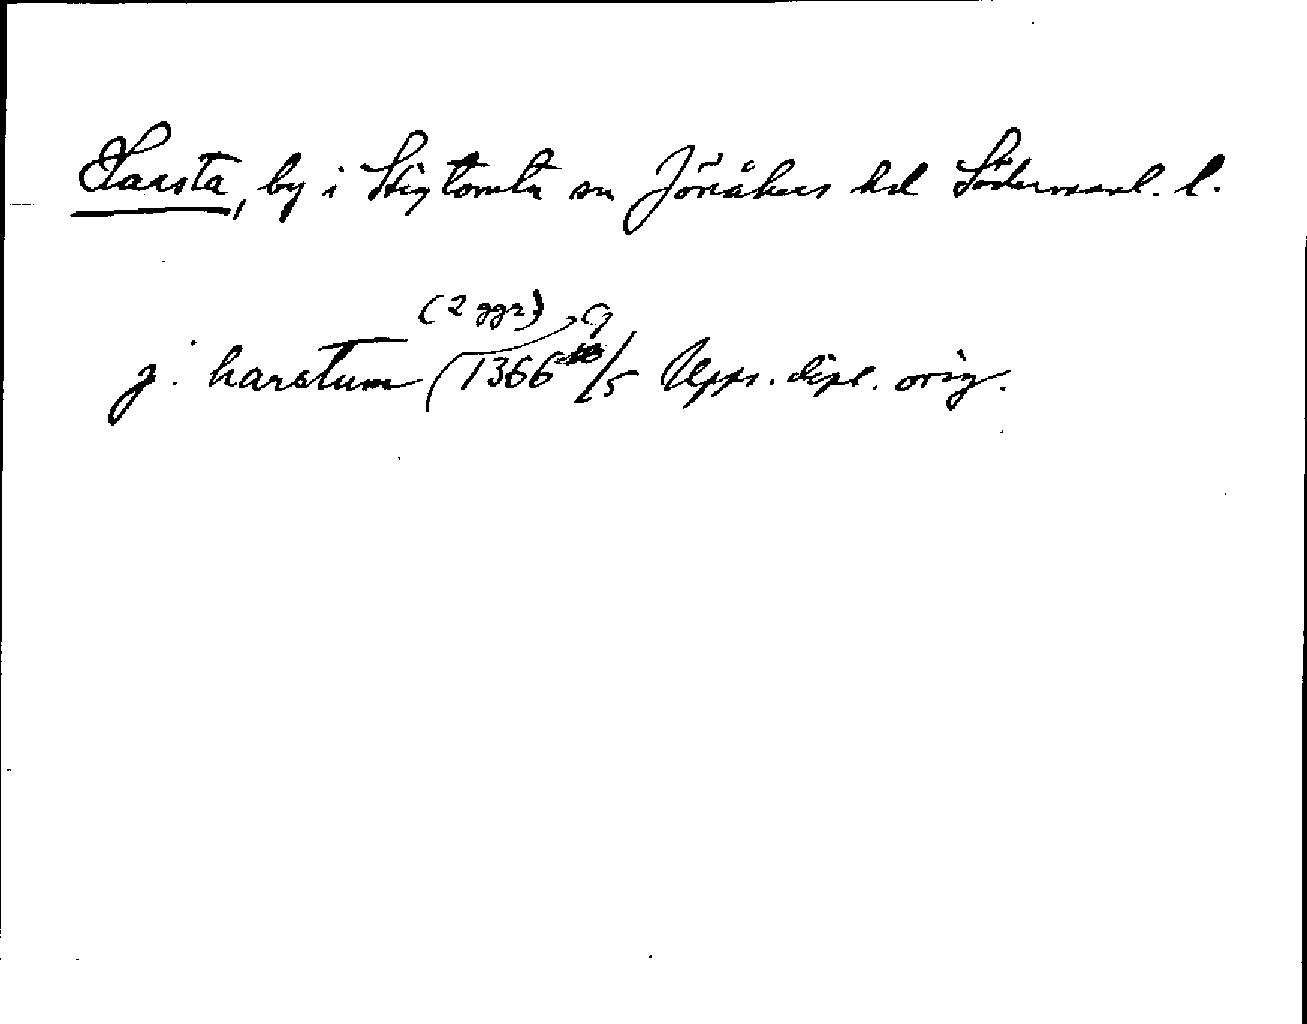 Harsta, by i Stigtomta sn Jönåkers hd Södermanl. l.
(2 ggr) 9
j. harstum (1366 /5 Upps. dipl. orig.